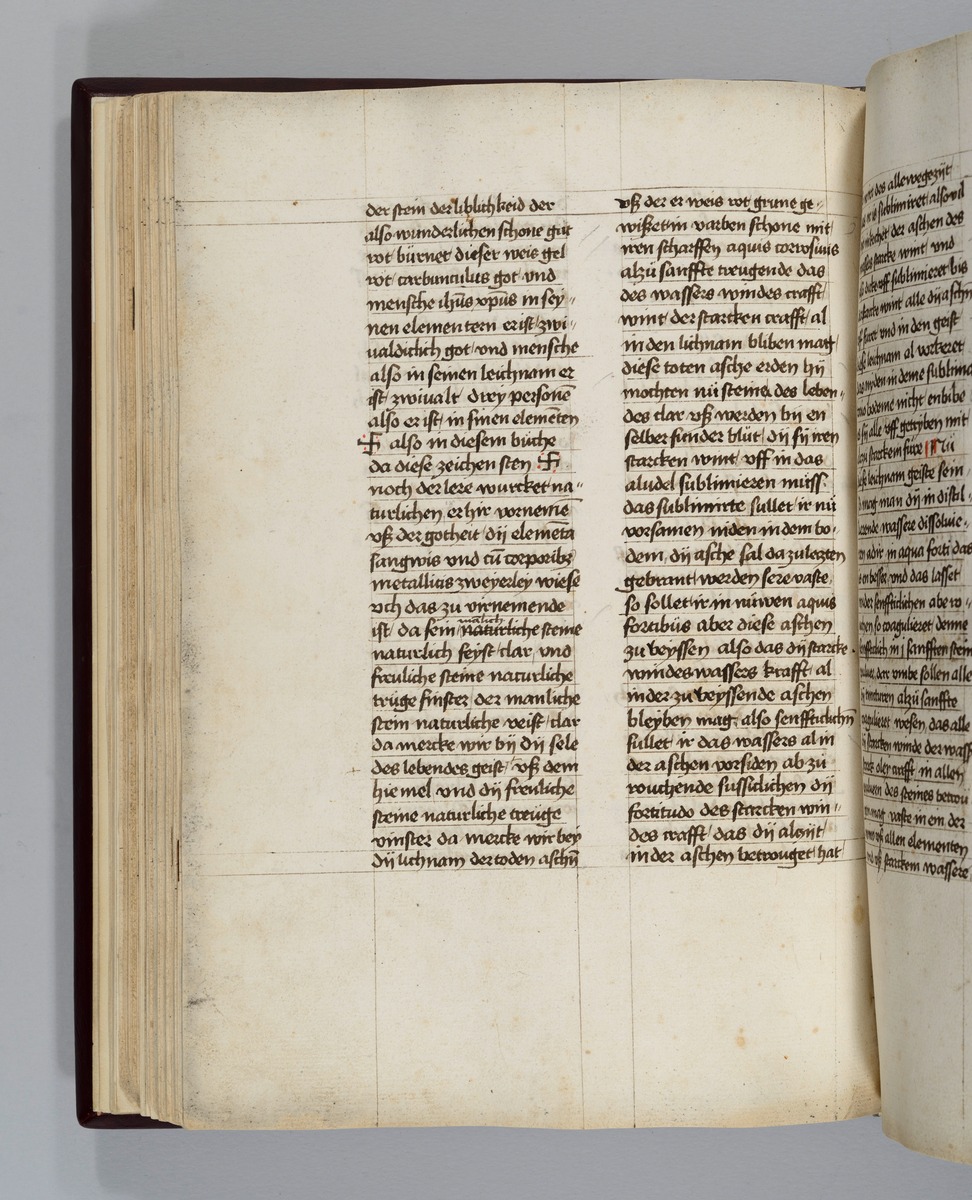 der stein der liblichkeid der
also wunderlichen schone gut
rot bürnet dieser weis gel
rot carbunculus got vnd
mensche ihūs xpūs in sey-
nen elementern er ist zwi-
ualdiclich got vnd mensche
also in seinen leichnam er
ist zwiualt drey personē
also er ist in sinen elemēten
also in diesem buche
da diese zeichen sten
noch der lere wurcket na-
turlichen er hir vornemē
vß der gotheit dij elemēta
sangwis vnd cū corporibꝫ
metallicis zweyerley wiese
vch das zu virnemende
ist da sein naturliche steine
naturlich feyst clar vnd
freuliche steine naturliche
truge finster der manliche
stein naturliche veist clar
da mercke wir bij dij sele
des lebendes geist vß dem
hiemel vnd dij freuliche
steine naturliche treuge
vinster da mercke wir bey
dij lichnam der toden aschñ
vß der er weis rot grune ge-
wißet in varben schone mit
iren scharffen aquis corrosiuis
alzu sanffte treugende das
des wassers windes crafft
wint der starcken crafft al
in den lichnam bliben mag
diese toten asche erden hij
mochten nü steine des leben-
des clar vß werden bij en
selber sunder blut dij sij iren
starcken wint vff in das
aludel sublimieren muss
das sublimirte sullet ir nü
vorsamen niden in dem bo-
dem dij asche sal da zulegten
gebrant werden sere vaste
so sollet ir in nüwen aquis
fortibus aber diese aschen
zu beyssen also das dij starcke
windes wassers krafft al
in der zu beyssende aschen
bleyben mag also senfftichlichñ
sullet ir das wassers al in
der aschen vorsiden ab zü
rouchende sussiclichen dij
fortitudo des starcken win-
des crafft das dij alczijt
in der aschen betrouget hat
des allewegezijt
sublimiret also vil
der aschen des
starcke wint vnd
vff sublimieret bis
wint alle dij aschñ
vnd in den geist
leichnam al vorkeret
in deme sublima
bodeme nicht enbibe
alle vff getryben mit
starckem füre
leichnam geiste sein
mag man dij in distil-
wassere dissoluie-
in aqua forti das
besser vnd das lasset
senfftichlichen abe ro-
so coagulieret denne
in sanfften stein
dar vmbe sollen alle
alzü sanffte
wesen das alle
starcken winde der wass
crafft in allen
des steines betrou
mag vaste in em der
vß allen elementen
vß starckem wassere